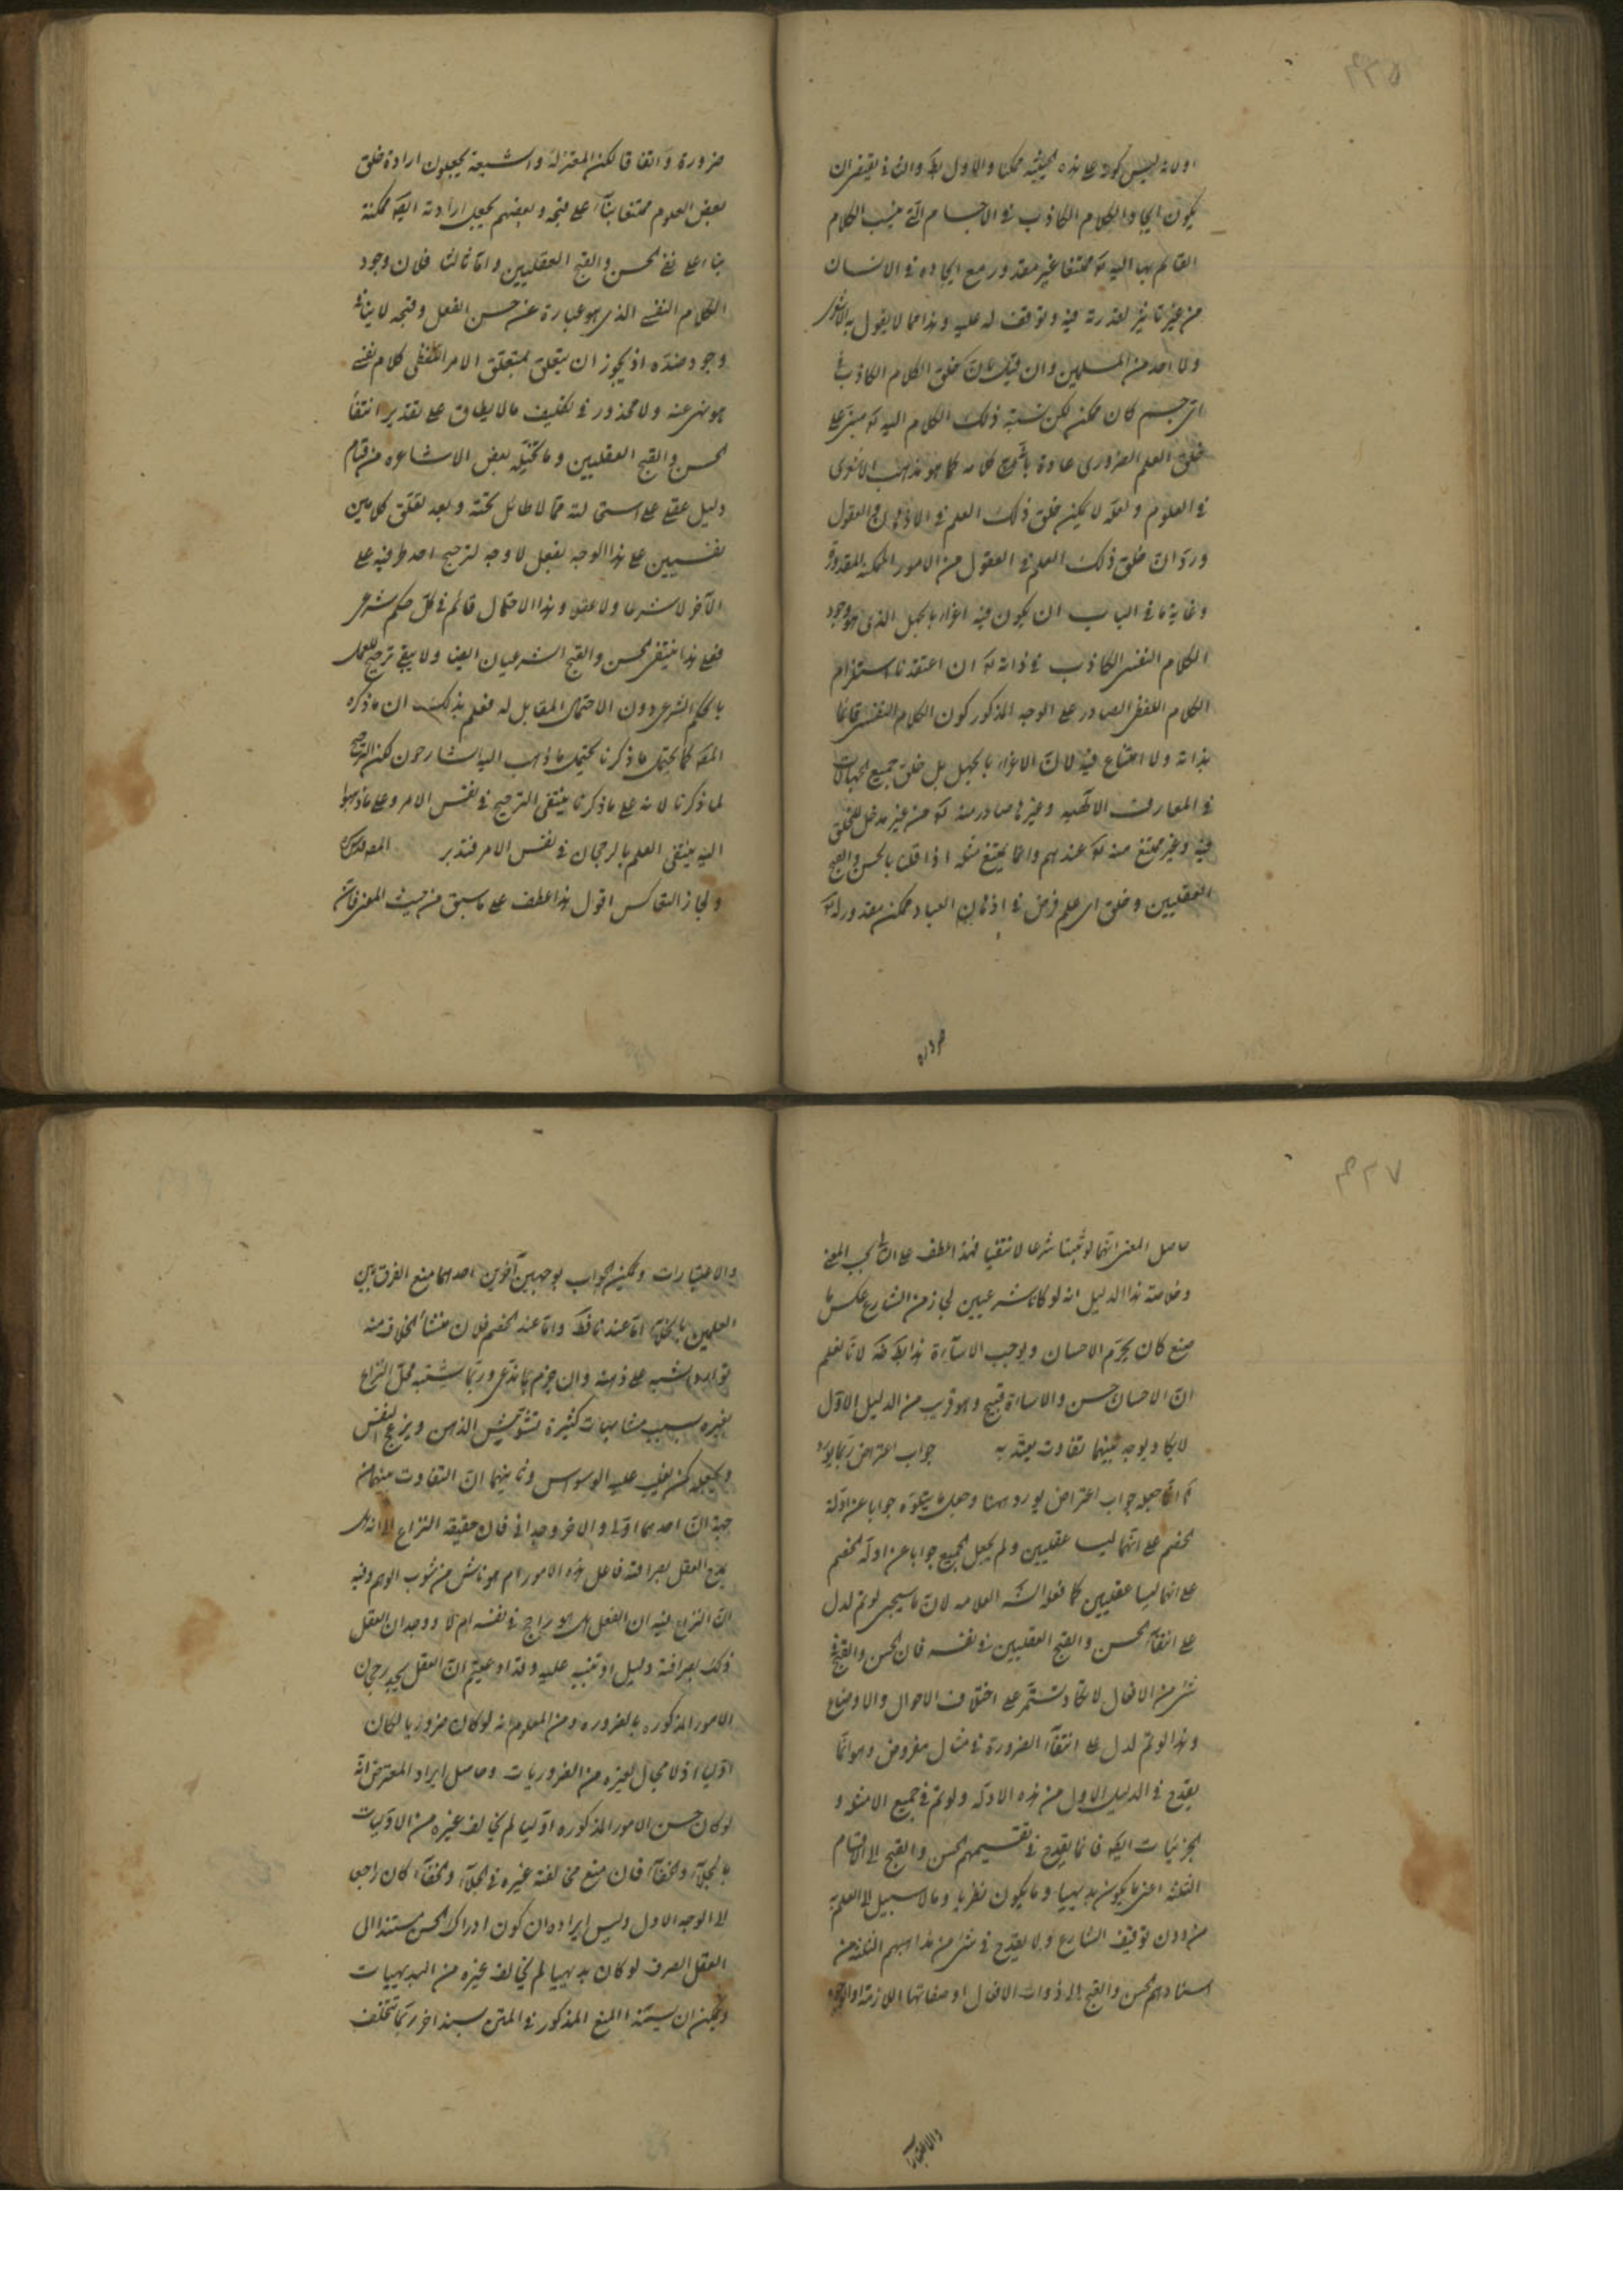 ۴۲۵
اولا نه ليس كونه على هذه الحيثية ممكنا والاول بط والثاني يقتضي ان
يكون ايجاد الكلام الكاذب في الاجسام التي ينسب الكلام
القائم بها اليه تع ممتنعا غير مقدور مع ايجاده في الانسان
من غير تاثير لقدرته فيه وتوقف له عليه وهذا مما لا يقول به الاشعري
ولا احد من المسلمين وان قيل ان خلق الكلام الكاذب في
اي جسم كان ممكن لكن نسبة ذلك الكلام اليه تع مبني على
خلق العلم الضروري عادة بانه كلامه كما هو مذهب الاشعري
في العلوم ولعله لا يمكن خلق ذلك العلم في الاذهان والعقول
ورد ان خلق ذلك العلم في العقول من الامور الممكنة المقدورة
وغاية ما في الباب ان يكون فيه اغواء بالجهل الذي هو وجود
الكلام النفسي الكاذب في ذاته تع ان اعتقدنا استلزام
الكلام اللفظي الصادر على الوجه المذكور كون الكلام النفسي قائما
بذاته ولا امتناع فيه لان الاغواء بالجهل بل خلق جميع الجهالات
في المعارف الالهية وغيرها صادر منه تع من غير مدخل للخلق
فيه وغير ممتنع منه تع عندهم وانما يمتنع مثله اذا قلنا بالحسن والقبح
العقليين وخلق اي علم فرض في اذهان العباد ممكن مقدور له تع
ضرورة
ضرورة واتفاقا لكن المعتزلة والشيعة يجعلون ارادة خلق
بعض العلوم ممتنعا بناء على قبحه وبعضهم يجعل ارادته ايضا ممكنة
بناء على نفي الحسن والقبح العقليين واما ثالثا فلان وجود
الكلام النفسي الذي هو عبارة عن حسن الفعل وقبحه لا ينافي
وجود ضده اذ يجوز ان يتعلق بمتعلق الامر اللفظي كلام نفسي
هو نهي عنه ولا محذور في تكليف ما لا يطاق على تقدير انتفاء
الحسن والقبح العقليين وما تخيله بعض الاشاعرة من قيام
دليل عقلي على استحالته مما لا طائل تحته وبعد تعلق كلامين
نفسيين على هذا الوجه بفعل لا وجه لترجيح احد طرفيه على
الآخر لا شرعا ولا عقلا وهذا الاحتمال قائم في كل حكم شرعي
فعلى هذا ينتفي الحسن والقبح الشرعيان ايضا ولا يبقى ترجيح للعمل
بالحكم الشرعي دون الاحتمال المقابل له فعلم بذلك ان ما ذكره
المص كما يحتمل ما ذكرنا يحتمل ما ذهب اليه الشارحون لكن الترجيح
لما ذكرنا لانه على ما ذكرنا ينتفي الترجيح في نفس الامر وعلى ما ذهبوا
اليه ينتفي العلم بالرجحان في نفس الامر فتدبر المص قدس سره
ولجاز التعاكس اقول هذا عطف على ما سبق من حيث المعنى فان
۴۲۷
حاصل المعنى انهما لو ثبتا شرعا لانتفيا فهذا عطف على التالي بحسب المعنى
وخلاصة هذا الدليل انه لو كانا شرعيين لجاز من الشارع عكس ما
صنع كان يحرم الاحسان ويوجب الاساءة هذا بط لانا نعلم
ان الاحسان حسن والاساءة قبيح وهو قريب من الدليل الاول
لا يكاد يوجد بينهما تفاوت يعتد به جواب اعتراض ربما يورد
انما جعله جواب اعتراض يورد ههنا وجعل ما يتلوه جوابا عن ادلة
الخصم على انهما ليسا عقليين ولم يجعل الجميع جوابا عن ادلة الخصم
على انهما ليسا عقليين كما فعله الش العلامه لان ما سيجئ لو تم لدل
على انتفاء الحسن والقبح العقليين في نفسه فان الحسن والقبح في
شئ من الافعال لا يكاد يستمر على اختلاف الاحوال والاوضاع
وهذا لو تم لدل على انتفاء الضرورة في مثال مفروض وهو انما
يقدح في الدليل الاول من هذه الادلة ولو تم في جميع الامثلة و
الجزئيات ايضا فانما يقدح في تقسيمهم الحسن والقبح الى الاقسام
الثلثة اعني ما يكون بديهيا وما يكون نظريا وما لا سبيل الى العلم به
من دون توقيف الشارع ولا يقدح في شئ من مذاهبهم الثلثة من
اسنادهم الحسن والقبح الى ذوات الافعال او صفاتها اللازمة او الوجوه
والاعتبارات
والاعتبارات ويمكن الجواب بوجهين آخرين احدهما منع الفرق بين
العلمين بالجلاء اما عندنا فظ واما عند الخصم فلان منشأ الخلاف منه
توارد شبه على ذهنه وان جزم بما ندعي وربما يشتبه محل النزاع
بغيره بسبب مشابهات كثيرة تشوش الذهن ويزعج النفس
ويجعله كمن يغلب عليه الوسواس وثانيهما ان التفاوت منهما من
جهة ان احدهما اولى والاخر وجداني فان حقيقة النزاع الى انه هل
يمدح العقل بصرافته فاعل هذه الامور ام هو ناش من شوب الوهم وفيه
ان النزاع فيه ان الفعل هل هو راجح في نفسه ام لا ووجدان العقل
ذلك بصرافته دليل او تنبيه عليه وقد ادعيتم ان العقل يجد رجحان
الامور المذكورة بالضرورة ومن المعلوم انه لو كان ضروريا لكان
اوليا اذ لا مجال لغيره من الضروريات وحاصل ايراد المعترض انه
لو كان حسن الامور المذكورة اوليا لم يخالف غيره من الاوليات
بالجلاء والخفاء فان منع مخالفة غيره في الجلاء والخفاء كان راجعا
الى الوجه الاول وليس ايراده ان كون ادراك الحسن مستندا الى
العقل الصرف لو كان بديهيا لم يخالف غيره من البديهيات
ويمكن ان يستند المنع المذكور في المتن بسند اخر ربما يختلف